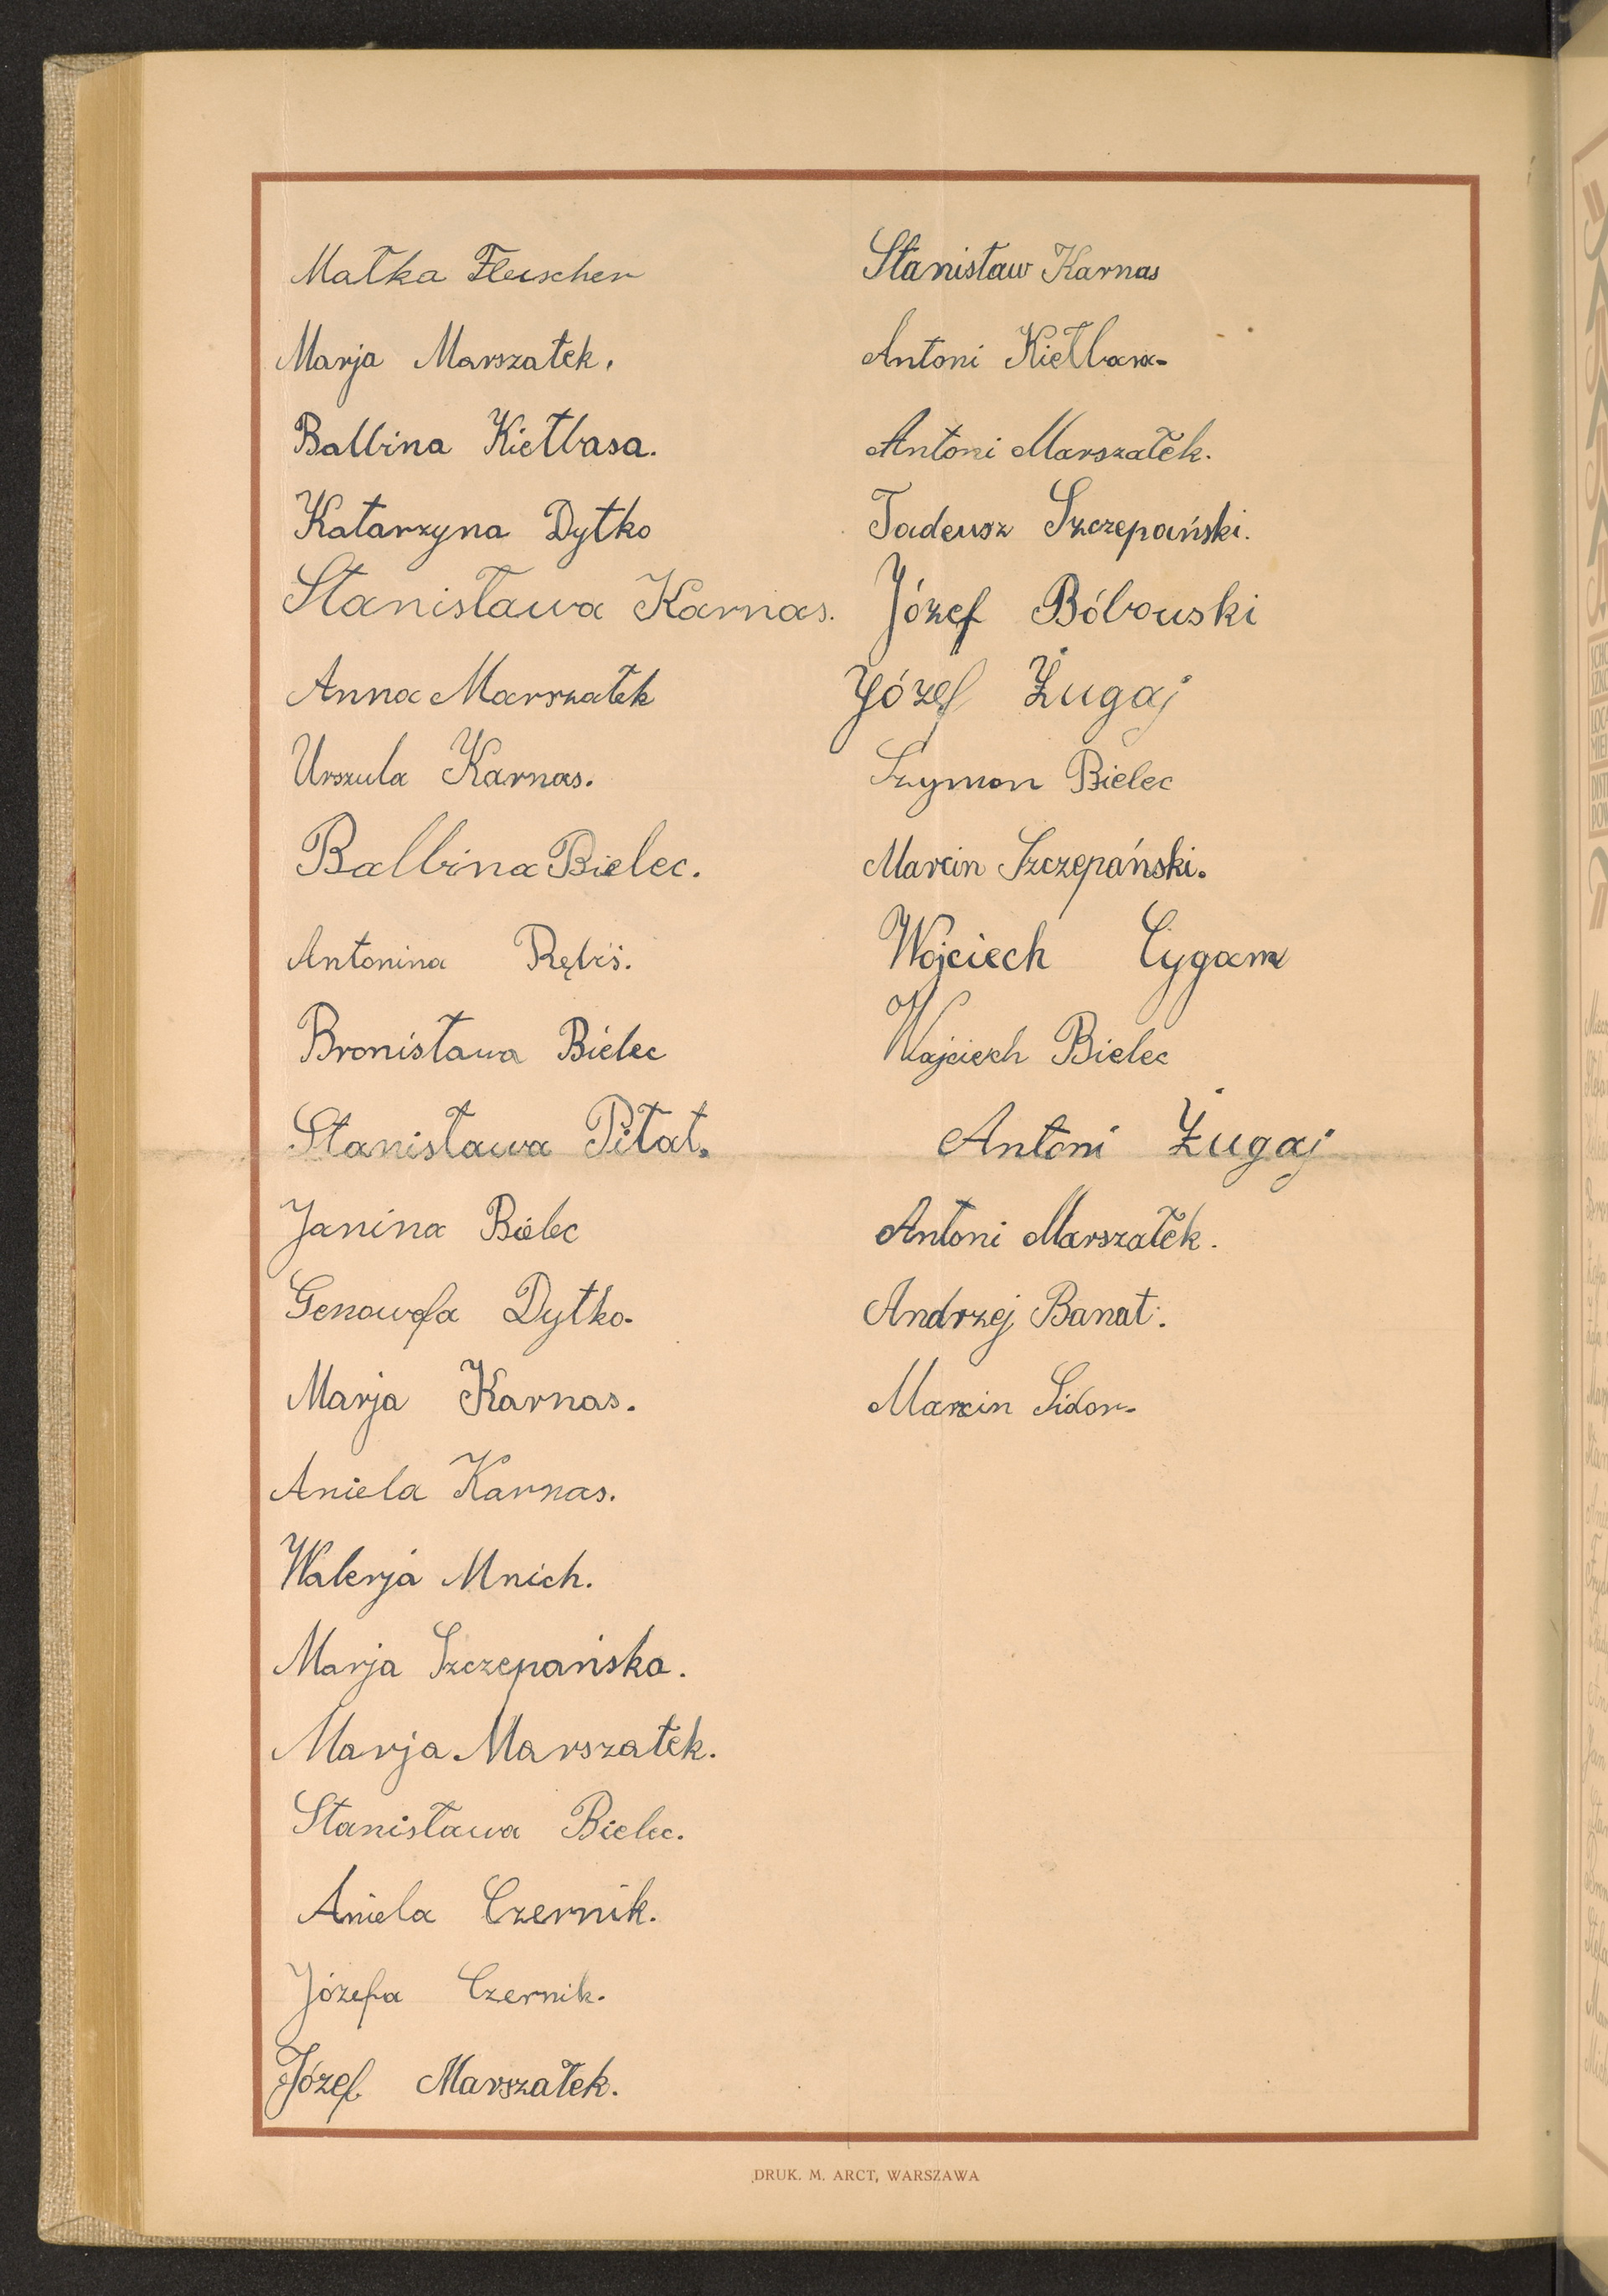 Małka Fleischer
Marja Marszałek.
Balbina Kiełbasa.
Katarzyna Dytko
Stanisława Karnas.
Anna Marszałek
Urszula Karnas.
Balbina Bielec.
Antonina Rębiś.
Bronisława Bielec
Stanisława Pitat.
Janina Bielec
Genowefa Dytko.
Marja Karnas.
Aniela Karnas.
Walerja Mnich.
Marja Szczepańska.
Marja Marszałek.
Stanisława Bielec.
Aniela Czernik.
Józefa Czernik.
Józef Marszałek.
Stanisław Karnas
Antoni Kiełbasa
Antoni Marszałek.
Tadeusz Szczepański.
Józef Bóbowski
Józef Żugaj
Szymon Bielec
Marcin Szczepański.
Wojciech Cygan
Wojciech Bielec
Antoni Żugaj
Antoni Marszałek.
Andrzej Banat.
Marcin Sidor.
DRUK. M. ARCT, WARSZAWA